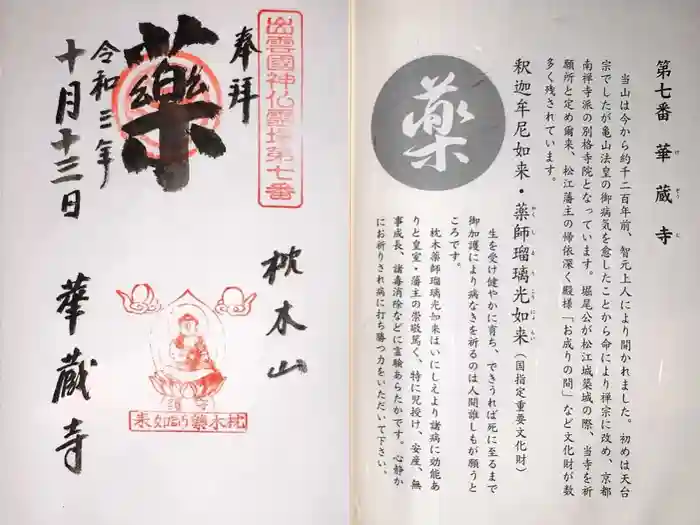 第七番 華蔵寺
けぞうじ
当山は今から約千二百年前、智元上人により開かれました。初めは天台
宗でしたが亀山法皇の御病気を愈したことから命により禅宗に改め、京都
南禅寺派の別格寺院となっています。堀尾公が松江城築城の際、当寺を祈
願所と定め爾来、松江藩主の帰依深く殿様「お成りの間」など文化財が数
多く残されています。
薬
釈迦牟尼如来・薬師瑠璃光如来(国指定重要文化財)
やくしるりこうにょらい
生を受け健やかに育ち、できうれば死に至るまで
御加護により病なきを祈るのは人間誰しもが願うと
ころです。
枕木薬師瑠璃光如来はいにしえより諸病に効能あ
りと皇室・藩主の崇敬篤く、特に児授け、安産、無
事成長、諸毒消除などに霊験あらたかです。心静か
にお祈りされ病に打ち勝つ力をいただいて下さい。
出雲國神仏霊場第七番
奉拝
薬
令和三年
十月十三日
枕木山
華蔵寺
枕木薬師如来